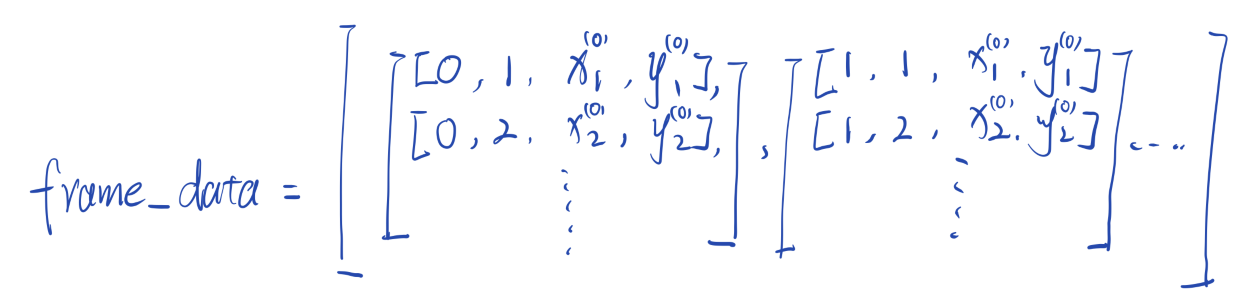 frame_data = [ [ [0, 1, x₁⁽⁰⁾, y₁⁽⁰⁾], [0, 2, x₂⁽⁰⁾, y₂⁽⁰⁾], ⋮ ], [ [1, 1, x₁⁽⁰⁾, y₁⁽⁰⁾] [1, 2, x₂⁽⁰⁾, y₂⁽⁰⁾] ⋮ ] ..... ]